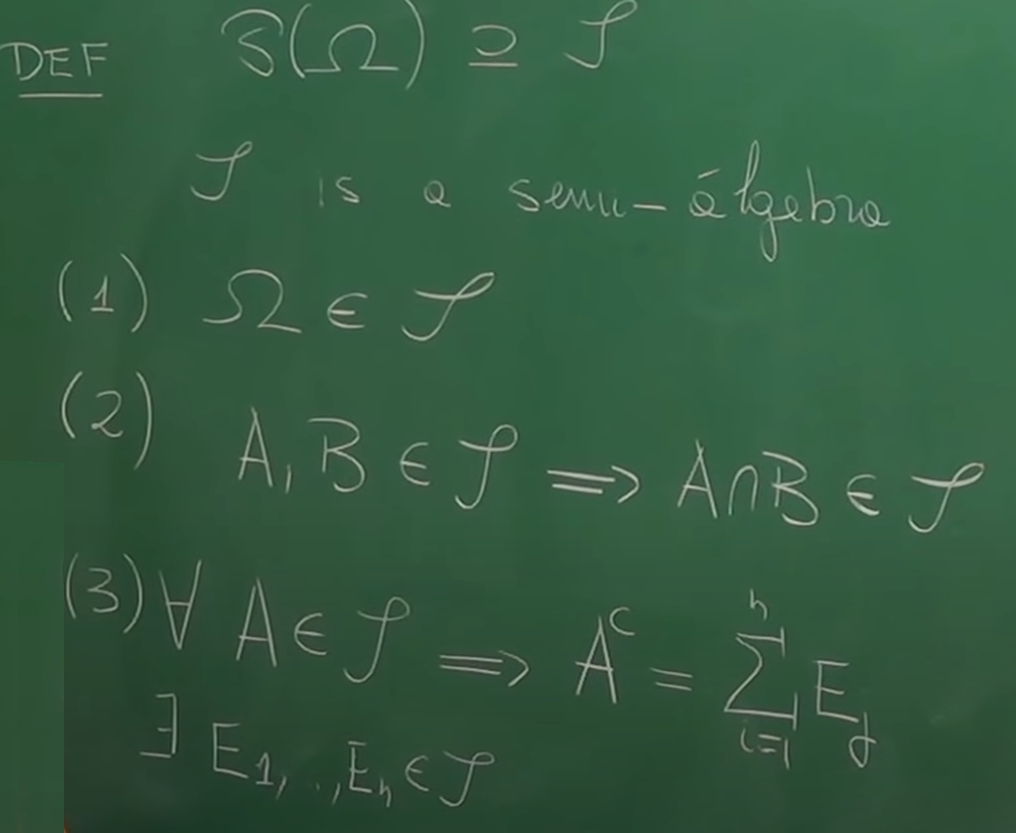 DEF 𝒫(Ω) ⊇ 𝒮
𝒮 is a semi-álgebra
(1) Ω ∈ 𝒮
(2) A, B ∈ 𝒮 ⟹ A∩B ∈ 𝒮
(3) ∀ A ∈ 𝒮 ⟹ A^c = ∑_{i=1}^{n} E_j
∃ E_1, .., E_n ∈ 𝒮